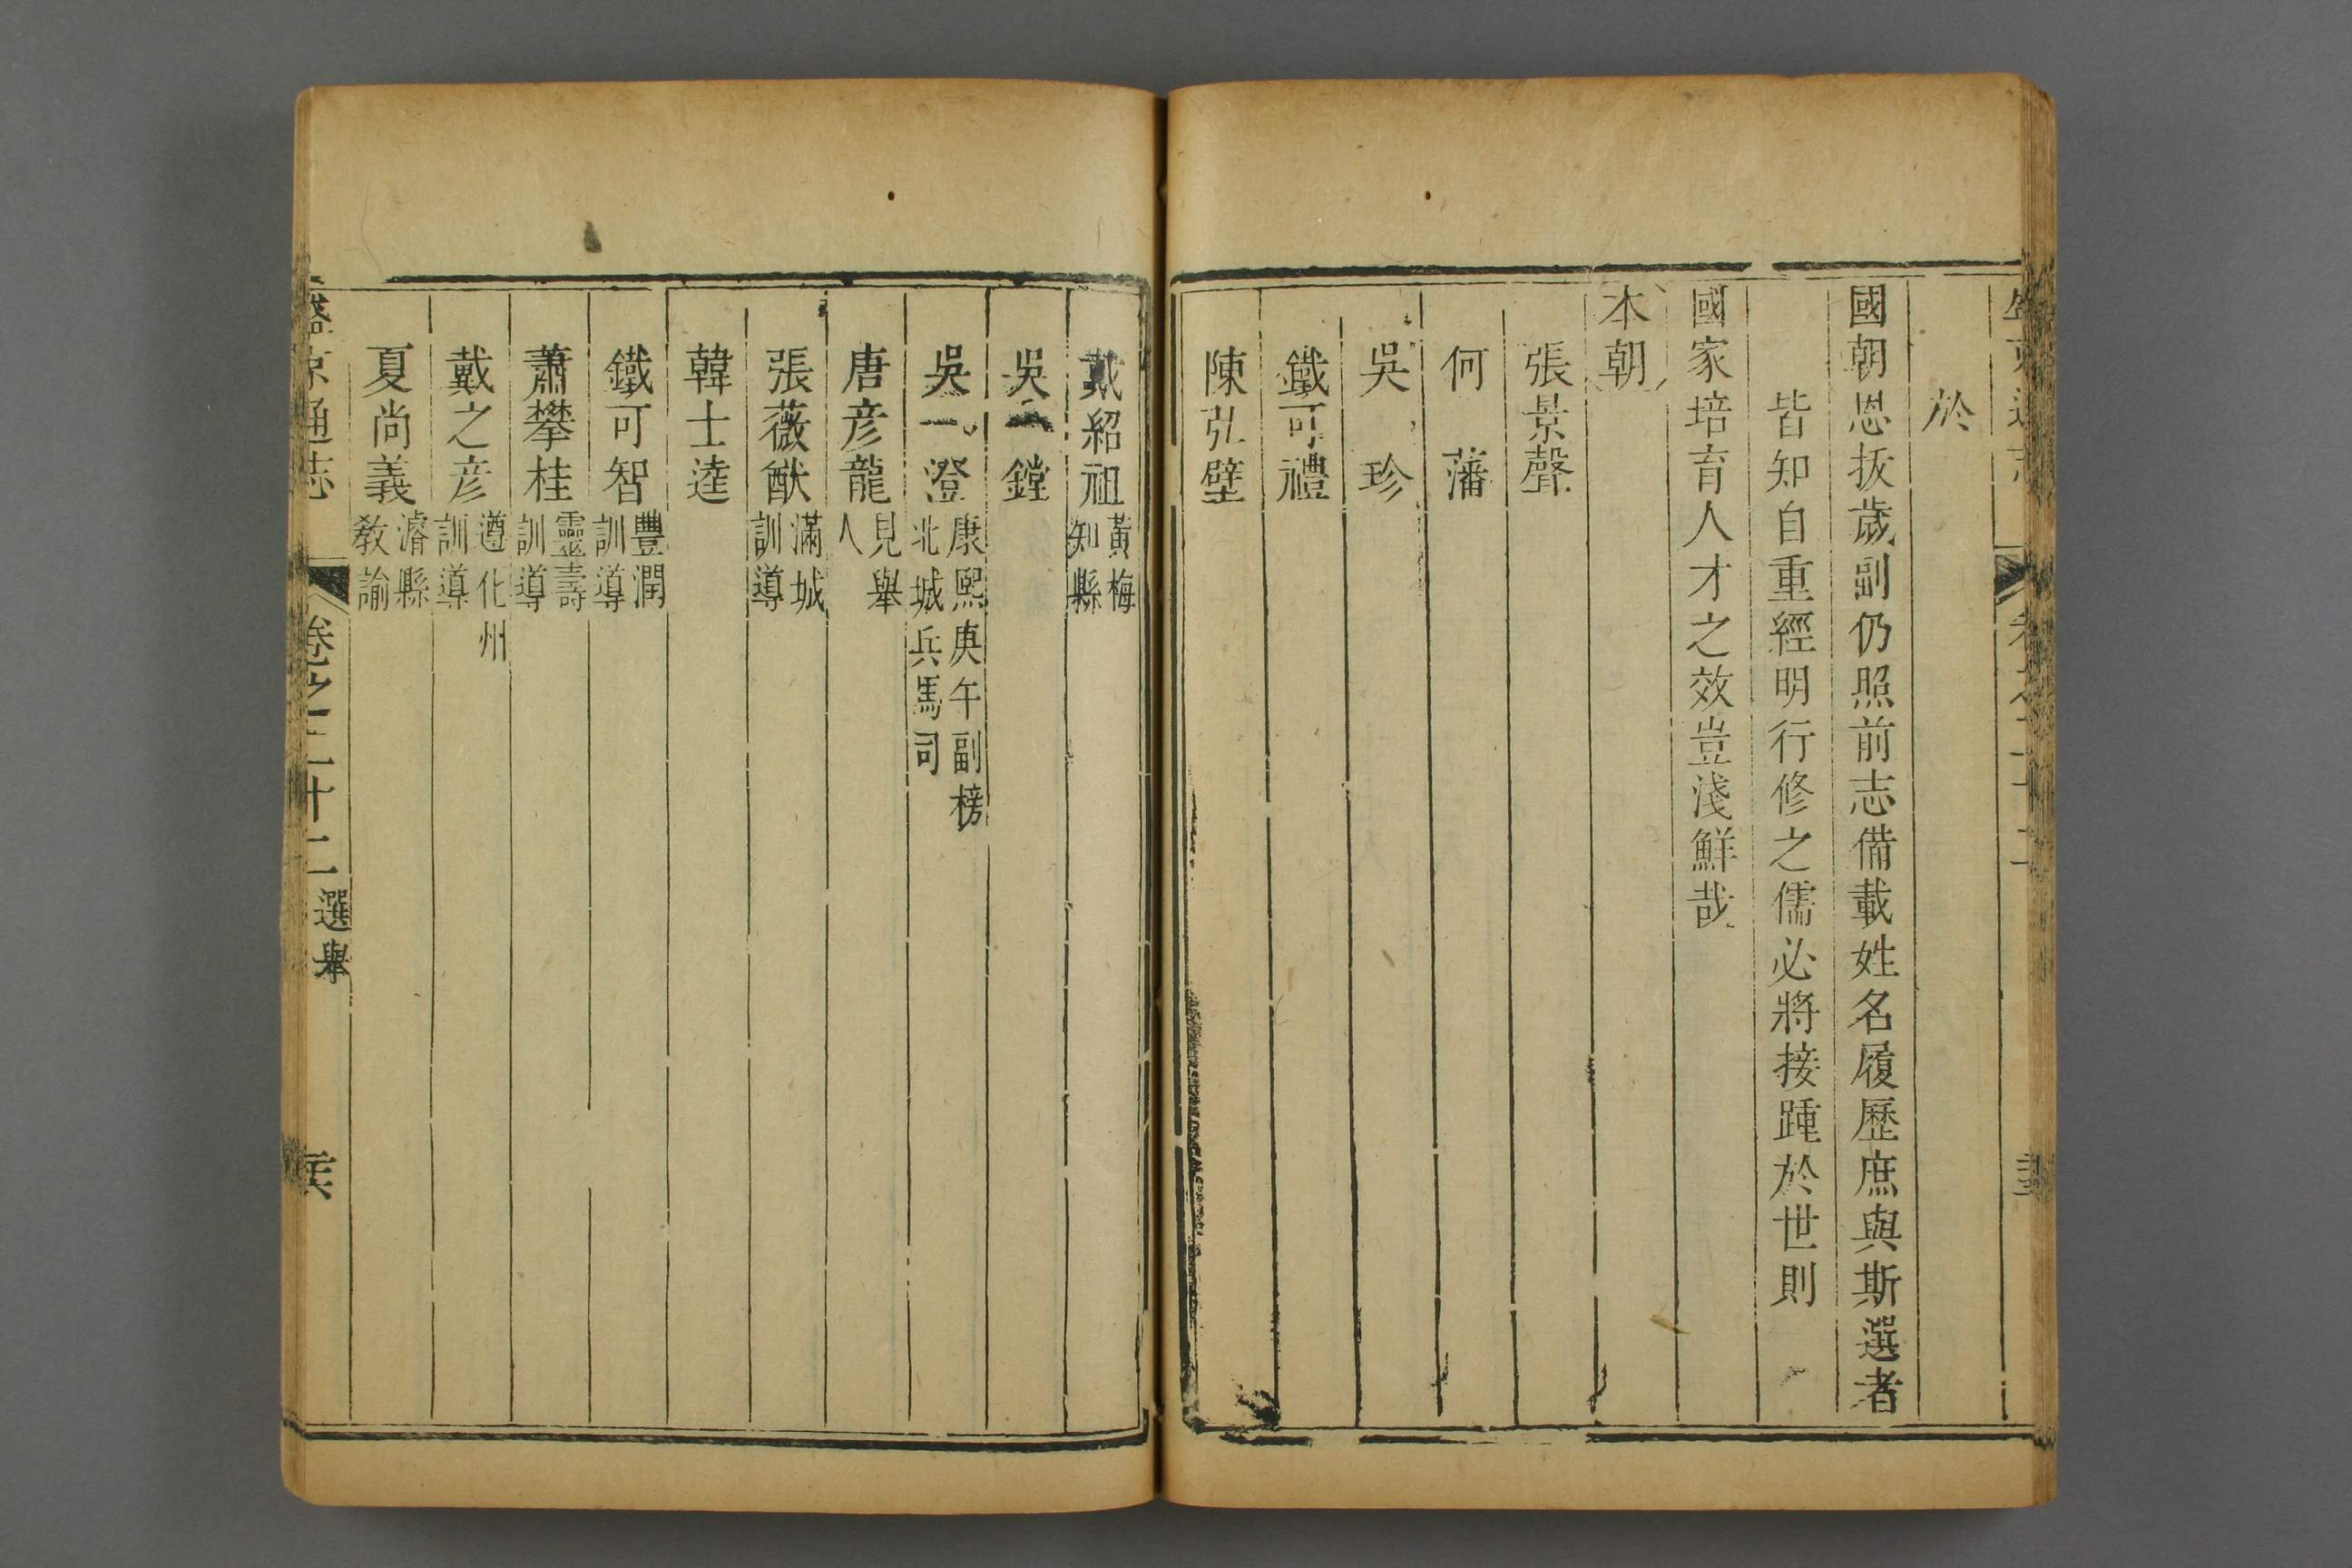 於
國朝恩拔歲副仍照前志備載姓名履歷庶與斯選者
皆知自重經明行修之儒必將接踵於世則
國家培育人才之效豈淺鮮哉
本朝
張景聲
何藩
吳珍
鐵可禮
陳弘璧
戴紹祖 黃梅知縣
吳一鏜
吳一澄 康熙庚午副榜北城兵馬司
唐彥龍 見舉人
張薇猷 滿城訓導
韓士逵
鐵可智 豐潤訓導
蕭攀桂 靈壽訓導
戴之彥 遵化州訓導
夏尚義 濬縣教諭
盛京通志 卷之三十二 選舉